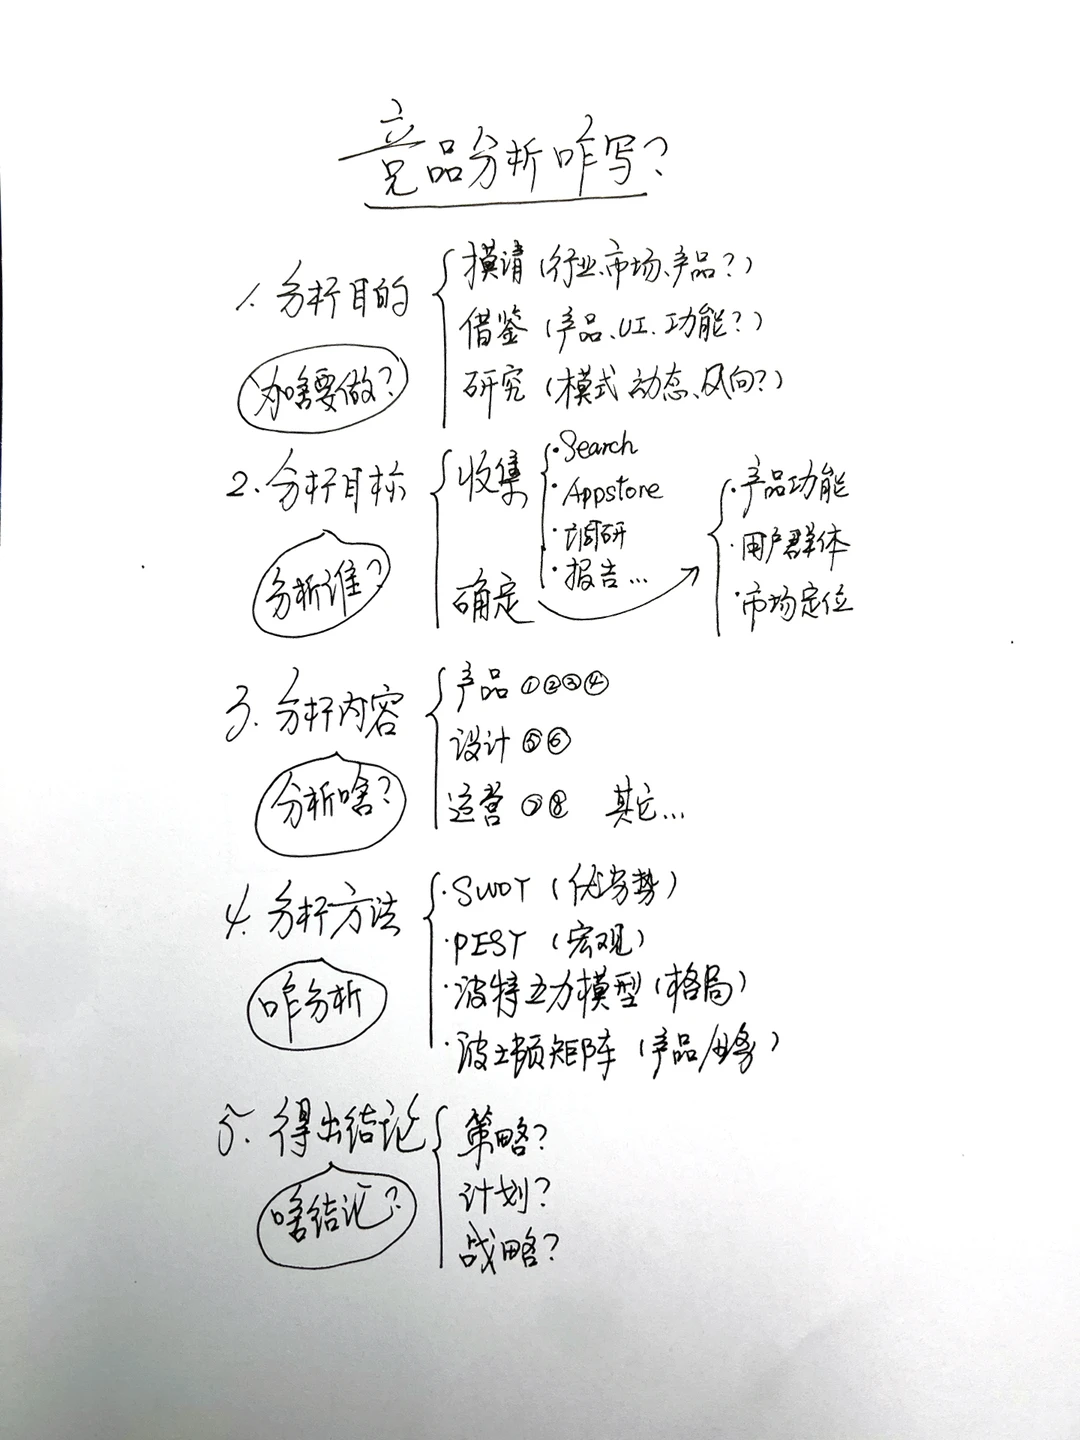 竞品分析咋写?
1. 分析目的
为啥要做?
摸清（行业、市场、产品?）
借鉴（产品、UI、功能?）
研究（模式 动态、风向?）
2. 分析目标
分析谁?
收集
·Search
·Appstore
·调研
·报告...
确定
·产品功能
·用户群体
·市场定位
3. 分析内容
分析啥?
产品 ①②③④
设计 ⑤⑥
运营 ⑦⑧ 其它...
4. 分析方法
咋分析
·SWOT（优劣势）
·PEST（宏观）
·波特五力模型（格局）
·波士顿矩阵（产品/业务）
5. 得出结论
啥结论?
策略?
计划?
战略?